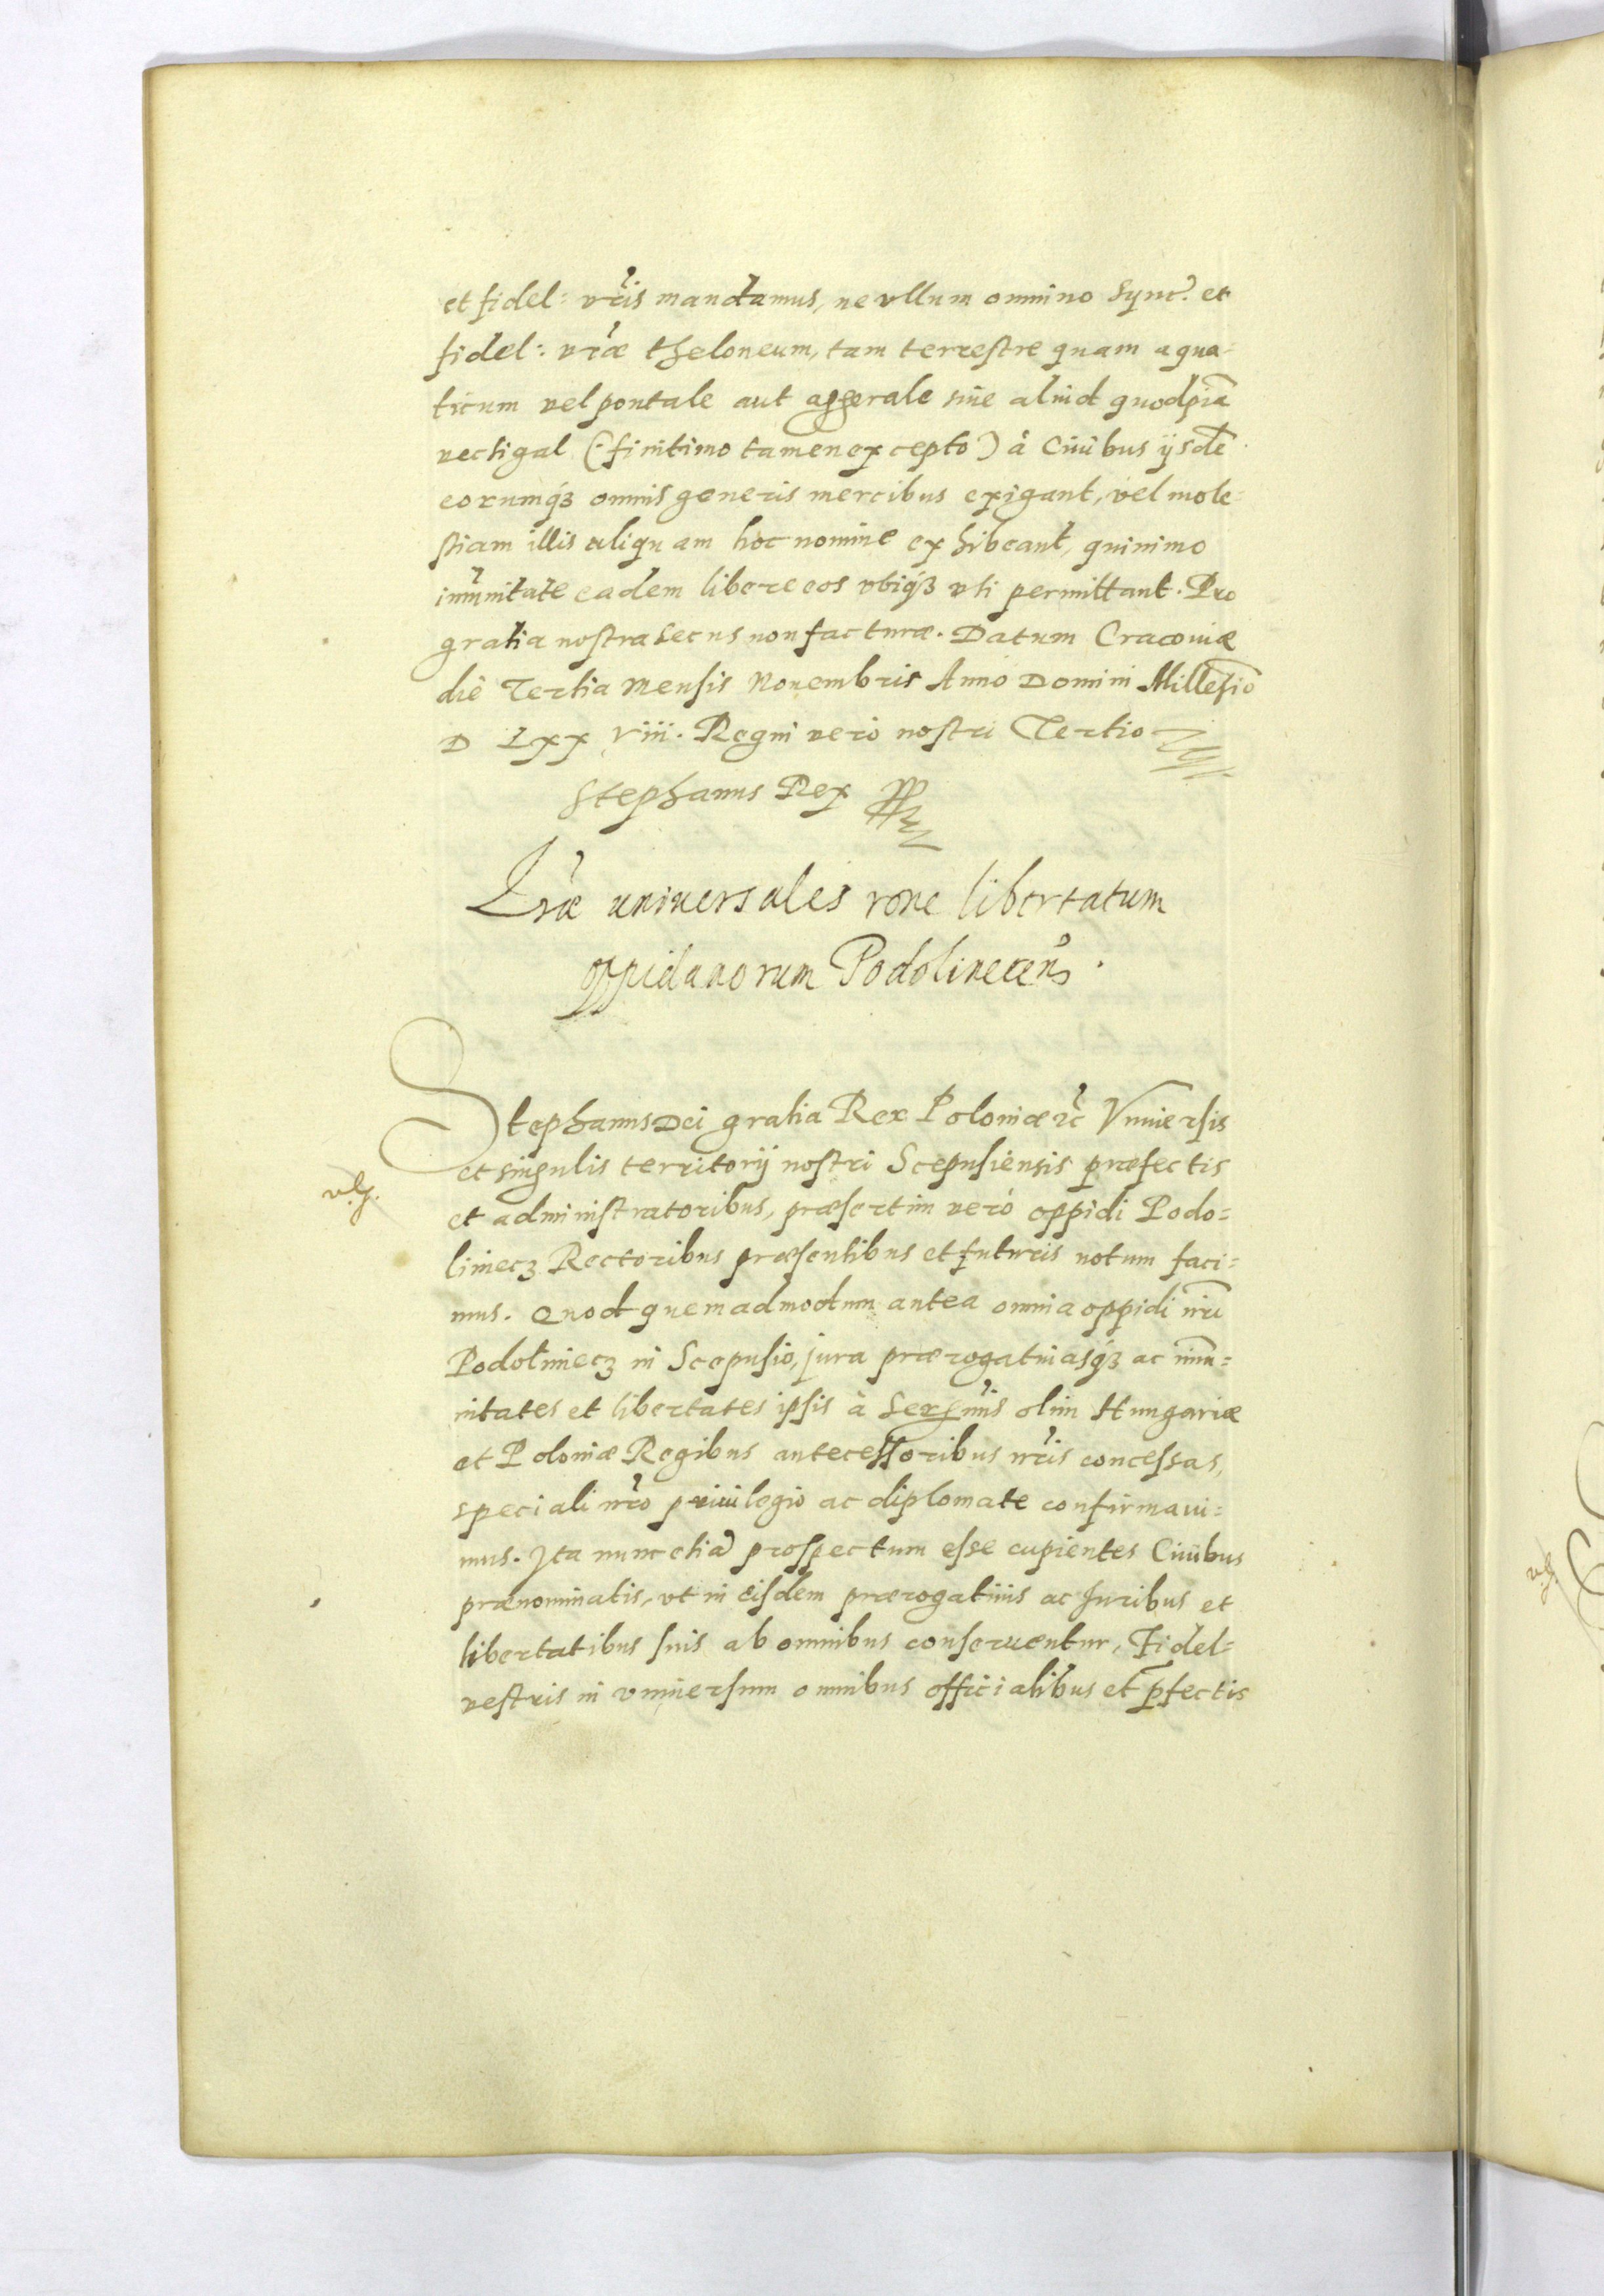 et fidel: vr̃is mandamus, ne vllum omnino Sync: et
fidel: vr̃æ theloneum, tam terrestre quam aqua-
ticum vel pontale aut aggerale siue aliud quodpiã
vectigal (: finitimo tamen excepto) à Ciuibus ijsdẽ
eorumqȝ omnis generis mercibus exigant, vel mole-
stiam illis aliquam hoc nomine exhibeant, quinimo
im̃unitate eadem libere eos vbiqȝ vti permittant. Pro
gratia nostra secus non facturæ. Datum Cracouiæ
die Tertia Mensis Nouembris Anno Domini Millesĩo
D Lxx viii. Regni vero nostri Tertio
Stephanus Rex
Lr̃æ uniuersales rõne libertatum
oppidanorum Podolinecen̄.
Stephanus Dei gratia Rex Poloniæ ꝛc̃ Vniuersis
et singulis territorij nostri Scepusiensis præfectis
et administratoribus, præsertim verò oppidi Podo=
liniecz Rectoribus præsentibus et futuris notum faci=
mus. Quod quemadmodum antea omnia oppidi nr̃i
Podoliniecz in Scepusio, jura prærogatiuasqȝ ac im̃u=
nitates et libertates ipsis à Ser̃enimis olim Hungariæ
et Poloniæ Regibus antecessoribus nr̃is concessas,
speciali nr̃o priuilegio ac diplomate confirmaui=
mus. Ita nunc etiã prospectum esse cupientes Ciuibus
prænominatis, vt in eisdem prærogatiuis ac Juribus et
libertatibus suis ab omnibus conseruentur, Fidel=
vestris in vniuersum omnibus officialibus et p̃fectis